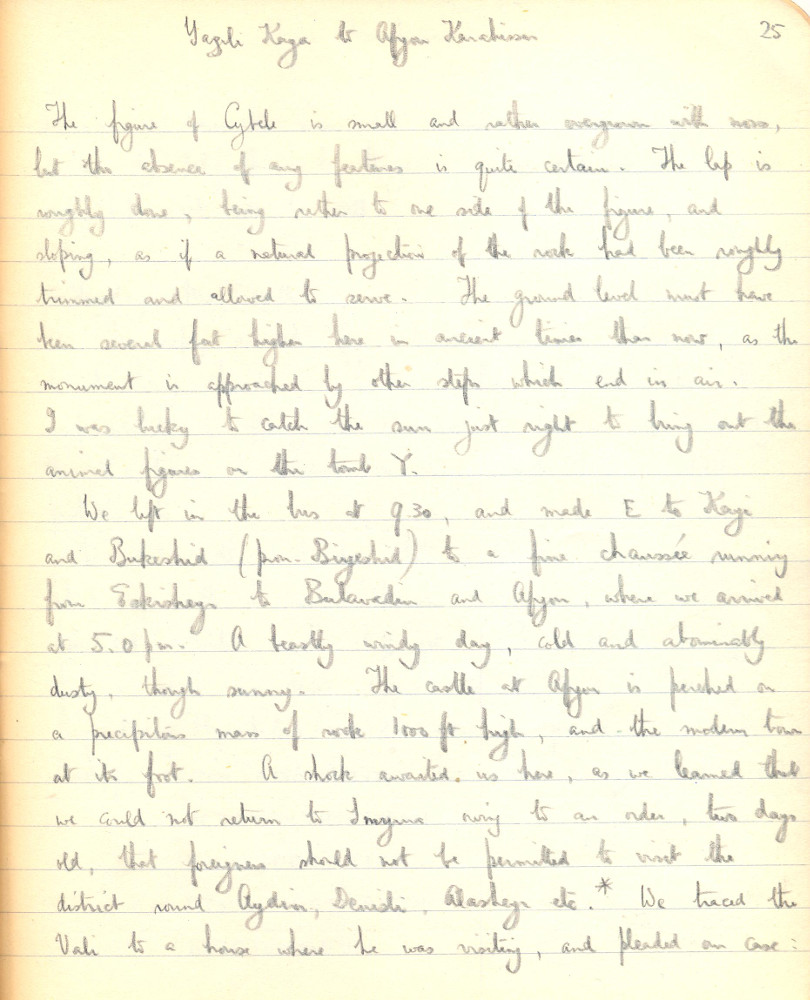 Yazili Kaya to Afyon Karahissar 25
The figure of Cybele is small and rather overgrown with moss,
but the absence of any features is quite certain. The lap is
roughly done, being rather to one side of the figure, and
sloping, as if a natural projection of the rock had been roughly
trimmed and allowed to serve. The ground level must have
been several feet higher here in ancient times than now, as the
monument is approached by other steps which end in air.
I was lucky to catch the sun just right to bring out the
animal figures on the tomb Y.
We left in the bus at 9.30, and made E to Kayi
and Bukeshid (pron. Biyeshid) to a fine chaussée running
from Eskishegr to Bulavadun and Afyon, where we arrived
at 5.0 pm. A beastly windy day, cold and abominably
dusty, though sunny. The castle at Afyon is perched on
a precipitous mass of rock 1000 ft high, and the modern town
at its foot. A shock awaited us here, as we learned that
we could not return to Smyrna owing to an order, two days
old, that foreigners should not be permitted to visit the
district round Aydin, Denisli, Alashegr etc.* We traced the
Vali to a house where he was visiting, and pleaded our case: